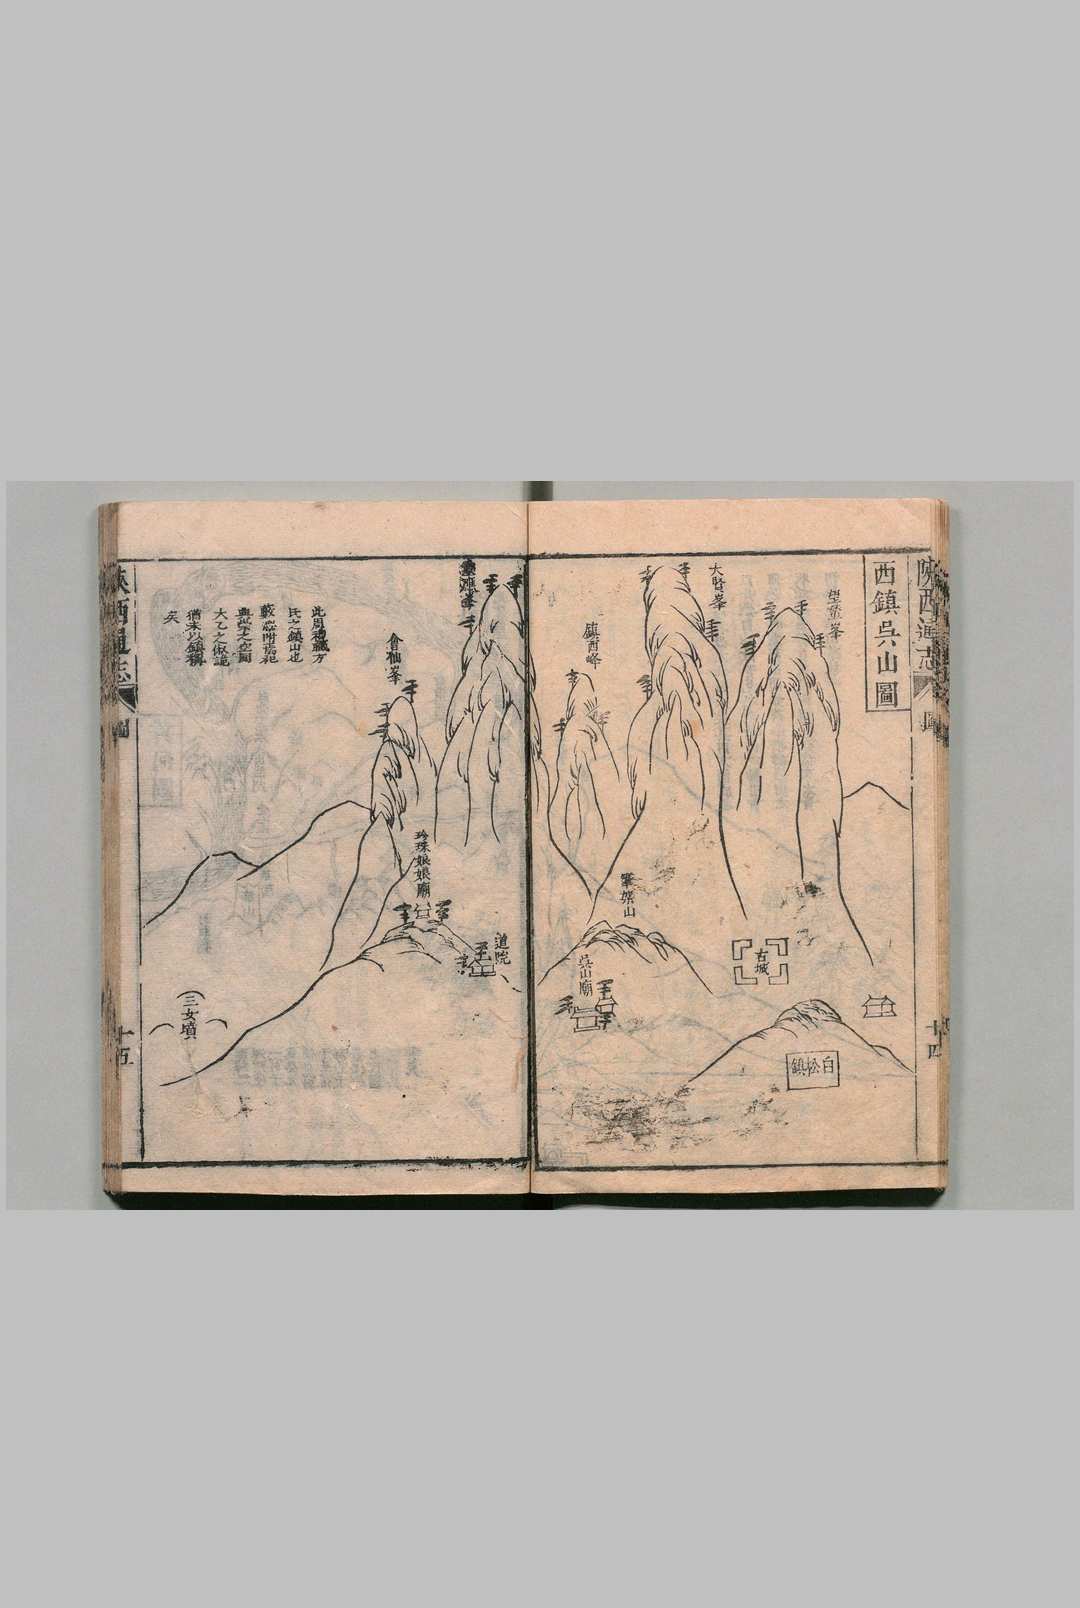 陝西通志
圖
十四
西鎮吳山圖
望輦峯
大賢峯
鎮西峰
筆架山
古城
白松鎮
吳山廟
靈應峯
會仙峯
珍珠娘娘廟
道院
三女墳
此周禮職方
氏之鎮山也
大乙之
猶未以鎮稱
矣
陝西通志
圖
十五